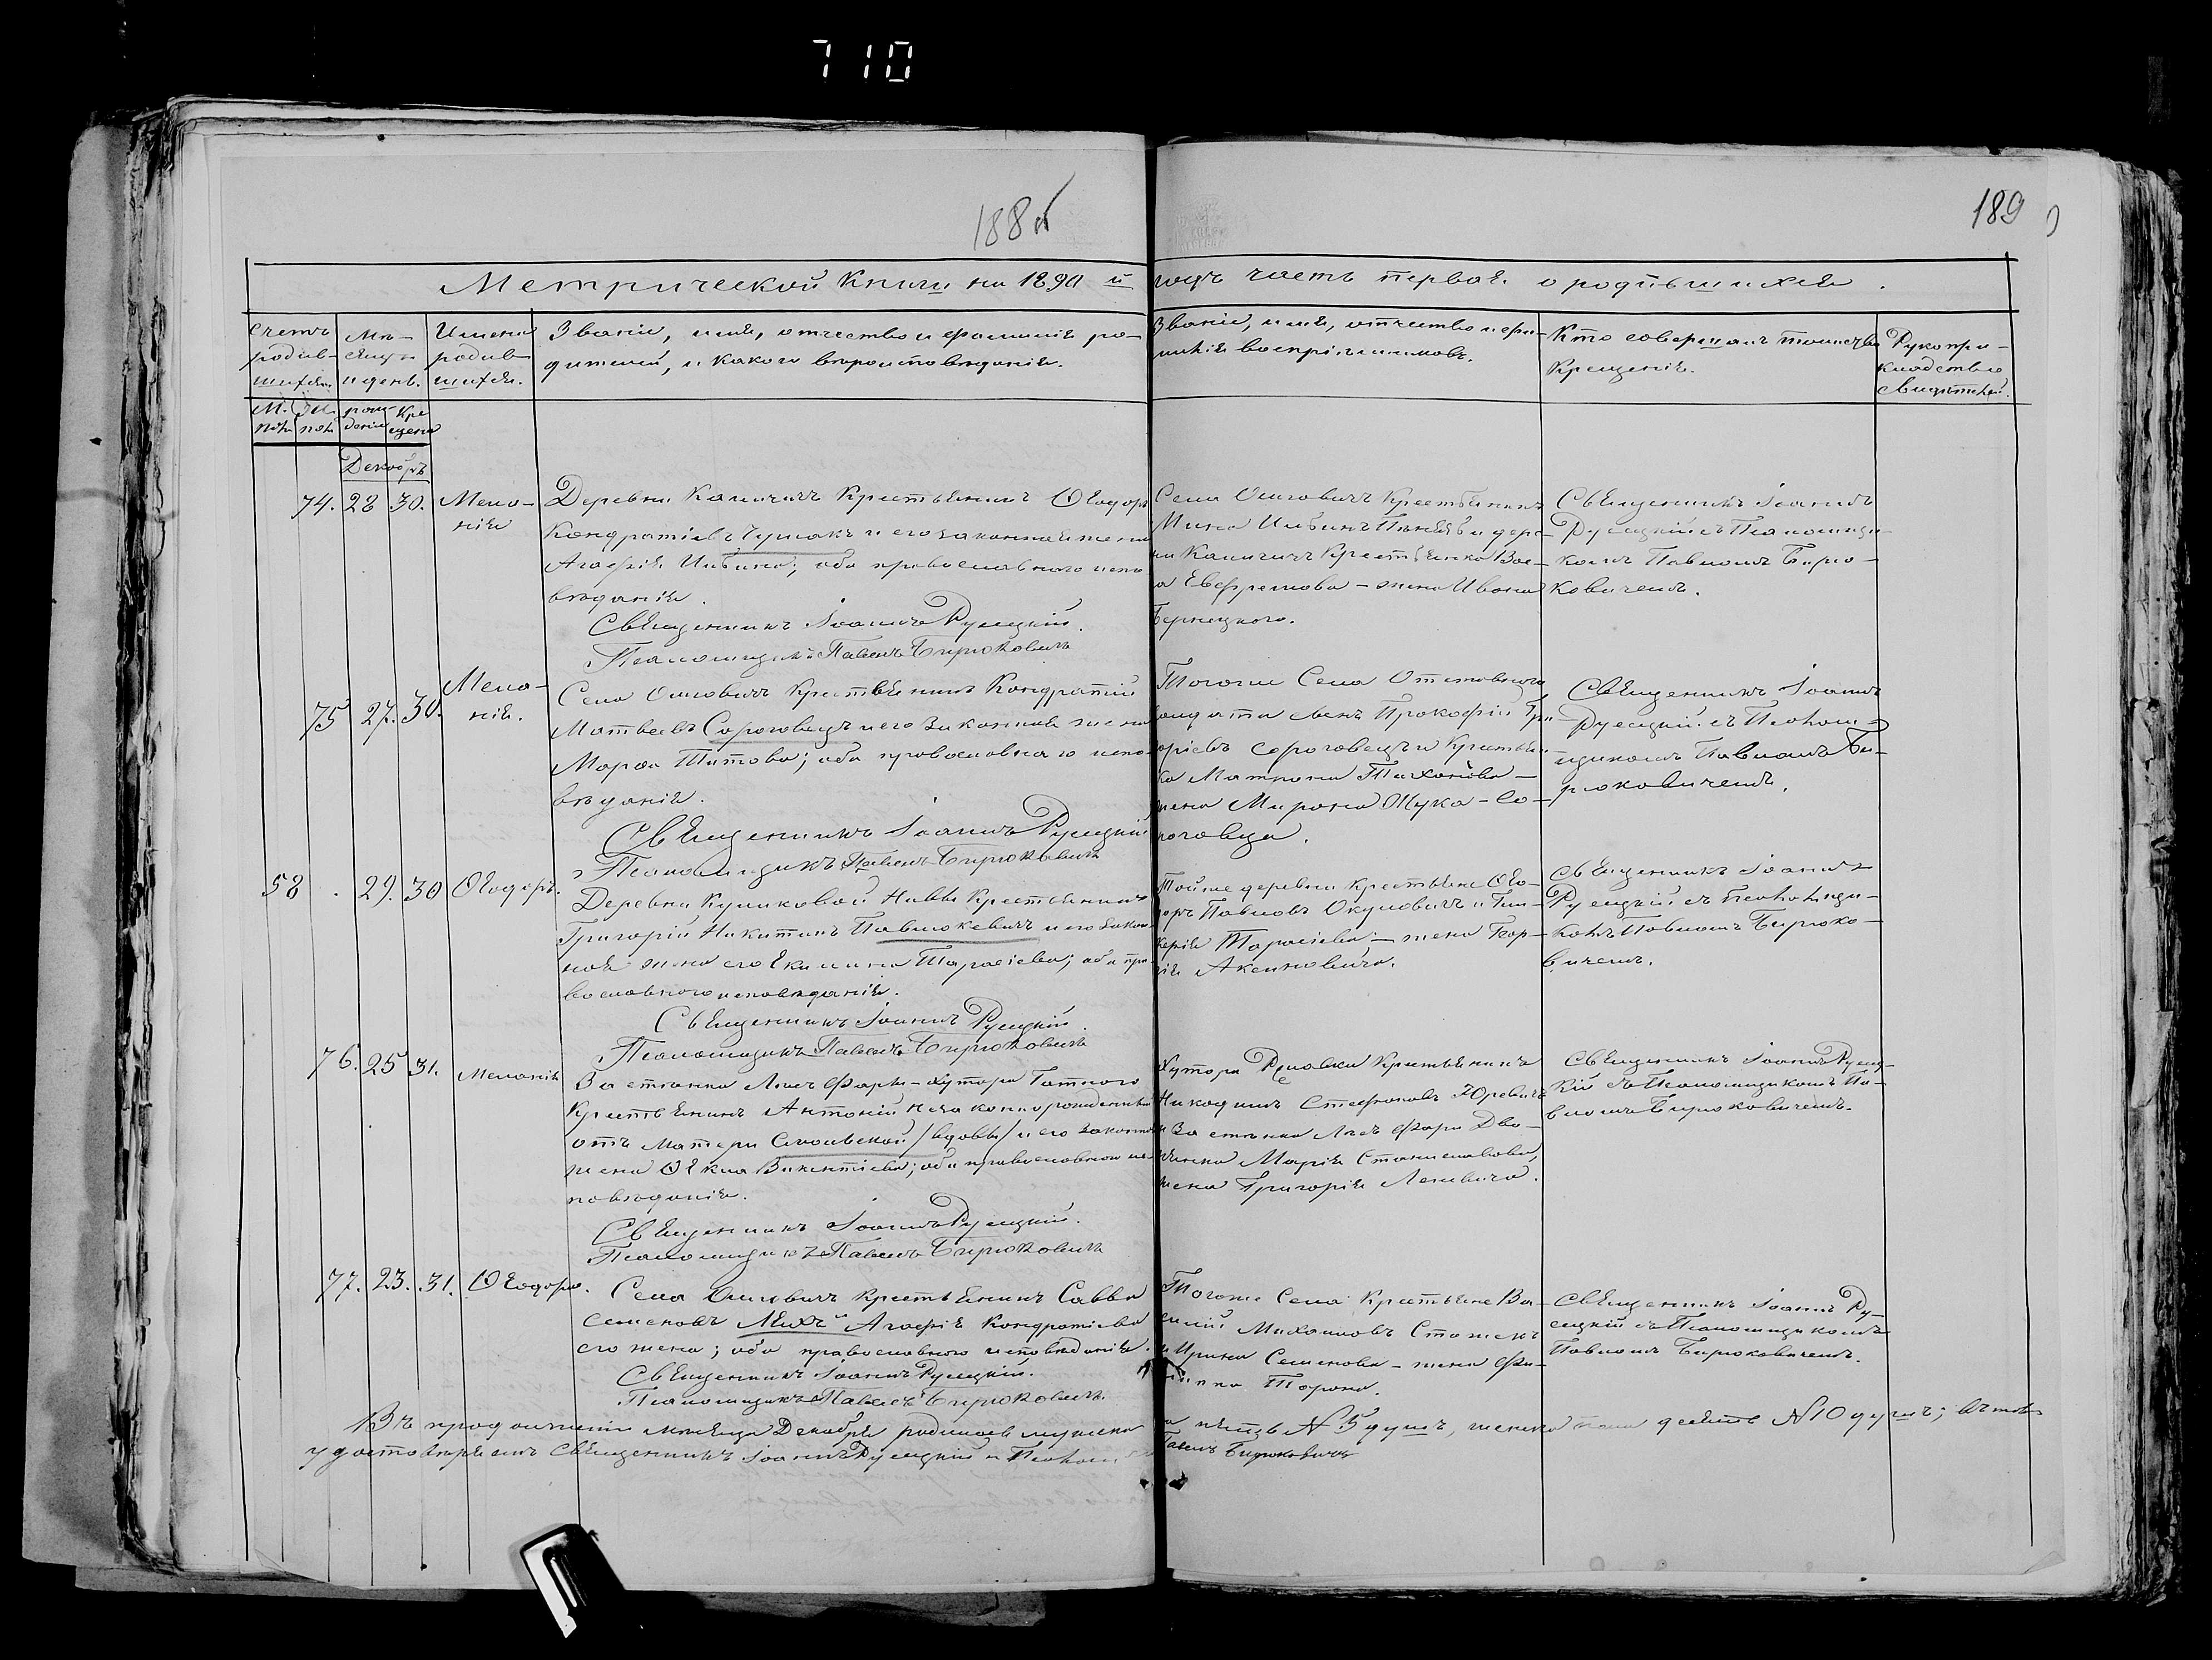 710
188
189
Метрической книги на 1890 й годъ часть первая о родившихся.
Счетъ родив-
шихся.
Мѣ-
сяцъ
и день.
Имена
родив-
шихся.
Званіе, имя, отчество и фамилія ро-
дителей, и какого вѣроисповѣданія.
Званіе, имя, отчество и фа-
милія воспріемниковъ.
Кто совершалъ таинство
Крещенія.
Рукопри-
кладство
свидѣтелей.
М. Ж. рож- Кре
пол. пол. денія щенія
Декабрь
74. 28 30. Мела-
нія
Деревни Крестьянинъ Ѳеодоръ
Кондратіевъ и его законная жена
Агафія Ильина; оба православнаго испо-
вѣданія.
Священникъ Іоаннъ Русецкій.
Псаломщикъ Павелъ Бирюковичъ
Села Осиповичъ Крестьянинъ
Мина Ильинъ и дерев-
ни Крестьянка Вас-
а Евфремова – жена Ивана
Бернецкого.
Священникъ Іоаннъ
Русецкій съ Псаломщи-
комъ Павломъ Бирю-
ковичемъ.
75 27. 30. Мела-
нія.
Села Осиповичъ Крестьянинъ Кондратій
Матвеевъ Сороговецъ и его Законная жена
Марѳа Титова; оба православнаго испо-
вѣданія.
Священникъ Іоаннъ Русецкій
Псаломщикъ Павелъ Бирюковичъ
Тогоже Села Отставной
солдатъ Прокофій Гри-
горіевъ Сороговецъ и Крестьян-
ка Матрона Тихонова –
жена Мирона Жука-Со-
роговца.
Священникъ Іоаннъ
Русецкій съ Псалом-
щикомъ Павломъ Би-
рюковичемъ.
58 . 29. 30 Ѳеодоръ.
Деревни Куликовой Нивы Крестьянинъ
Григорій Никитинъ Павлюкевичъ и его Закон-
ная жена его Екилина Тарасіева; оба пра-
вославнаго исповѣданія.
Священникъ Іоаннъ Русецкій.
Псаломщикъ Павелъ Бирюковичъ
Тойже деревни Крестьяне Ѳео-
доръ Павловъ Окуловичъ и Гли-
керія Тарасіева – жена
Аксиновича.
Священникъ Іоаннъ
Русецкій съ Псаломщи-
комъ Павломъ Бирюко-
вичемъ.
76. 25 31. Меланія
Застѣнка Ляс Фарн-хутора
Крестьянинъ Антоній незаконнорожденный
отъ матери /вдовы/ и его Законная
жена Ѳекла Викентіева; оба православнаго ис-
повѣданія.
Священникъ Іоаннъ Русецкій.
Псаломщикъ Павелъ Бирюковичъ
Хутора Крестьянинъ
Никодимъ Стефановъ Юревичъ
и Застѣнка Ляс Фарн Дво-
рянка Марія Станиславова,
жена Григорія Леневича.
Священникъ Іоаннъ Русец-
кій съ Псаломщикомъ Па-
вломъ Бирюковичемъ.
77. 23. 31. Ѳеодора.
Села Осиповичъ Крестьянинъ Савва
Семеновъ Агафія Кондратіева
его жена; оба православнаго исповѣданія.
Священникъ Іоаннъ Русецкій.
Псаломщикъ Павелъ Бирюковичъ
Тогоже Села Крестьяне Ва-
силій Михаиловъ
и Ирина Семенова – жена Фи-
липпа
Священникъ Іоаннъ Ру-
сецкій съ Псаломщикомъ
Павломъ Бирюковичемъ.
Въ продолженіи мѣсяца Декабря родилось мужска пола N 5 душъ, женска пола десять N 10 душъ; въ томъ
удостовѣряемъ Священникъ Іоаннъ Русецкій и Псаломщикъ Павелъ Бирюковичъ